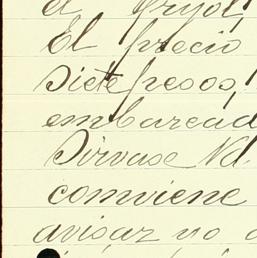 el frijol,
El precio
siete pesos,
embarcad
Sirvase Vd.
comviene
avisar no